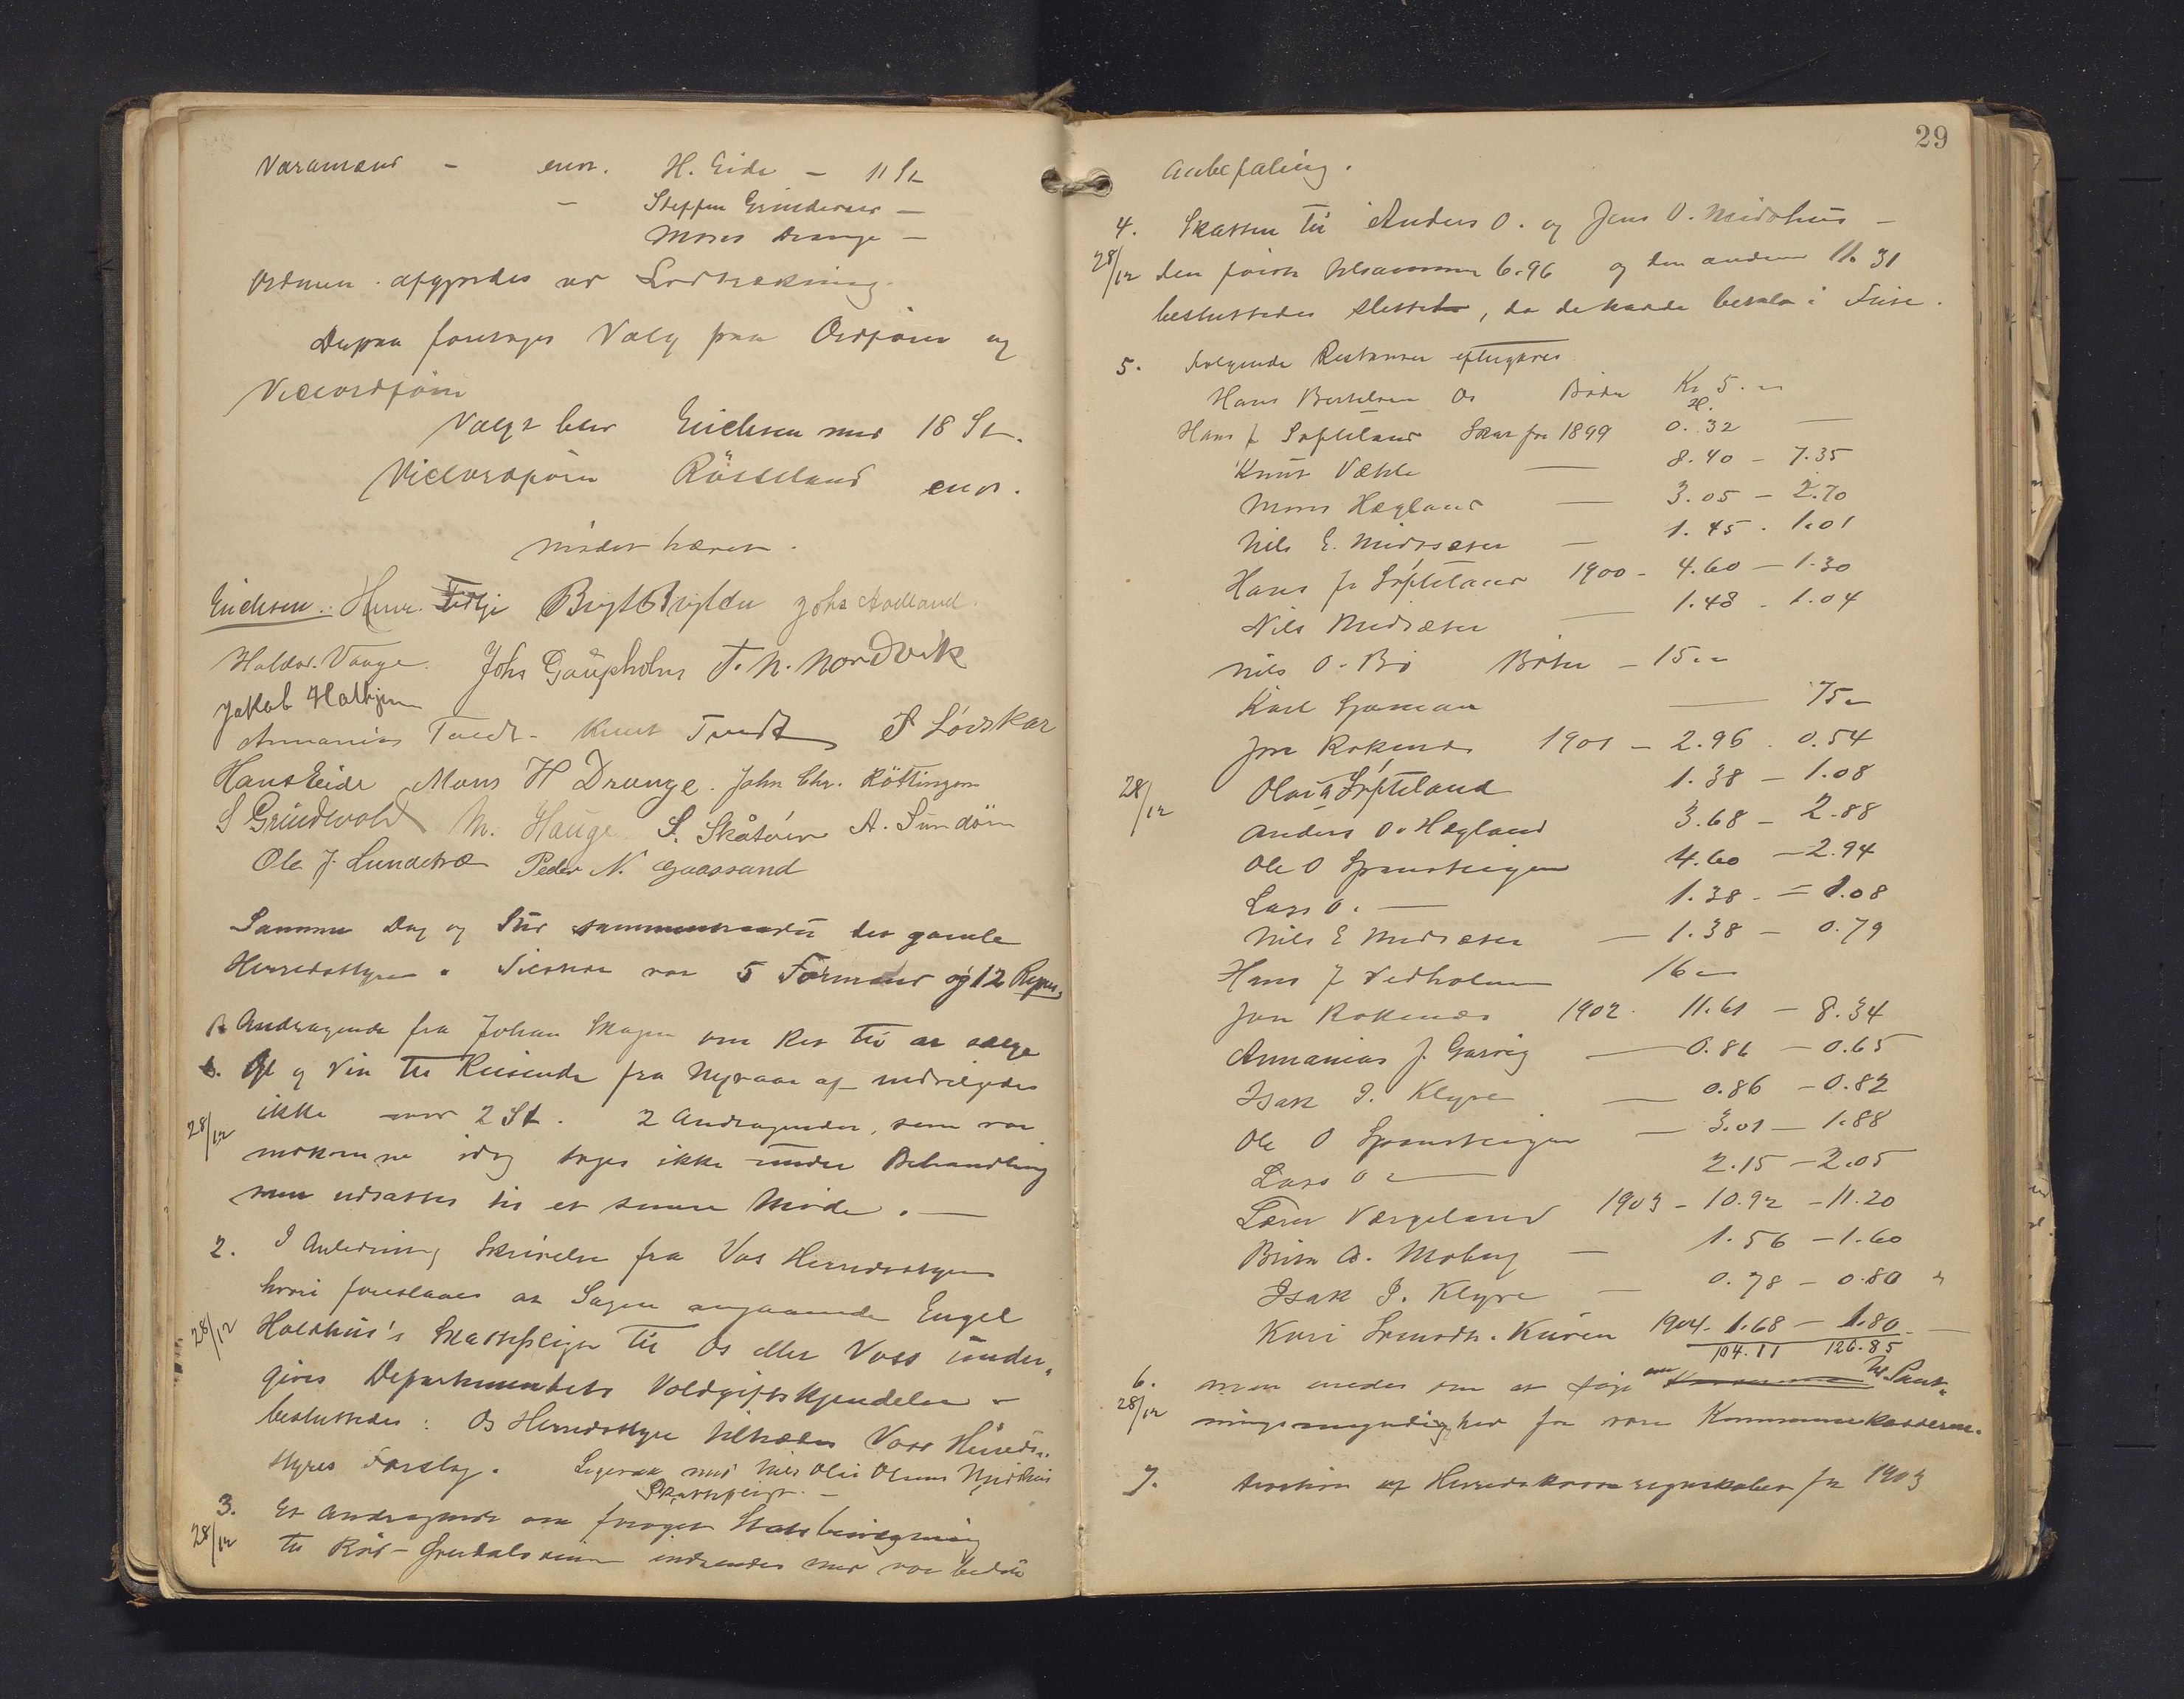 Varamænd - enst. H. Eide - 11 St
- Steffen Grindevold -
Mons Drange -
Ordenen afgjordes ved Lodtrækning.
Derpaa foretoges Valg paa Ordfører og
Viceordfører
Valgt blev Erichsen med 18 St.
Viceordfører Rötteland enst.
Mödet hævet.
Erichsen. Henr. Johs Aadland
Haldor. Vaage. Johs Gåupholm T. N. Nordvik
Jakob Hatvjem
Annanias Tveit - Knut Tveit P Lövskar
Hans Eide Mons H Drange. John Chr. Röttingen
S Grindevold M. Hauge S. Skåtöen A. Sundöen
Ole J. Lundetræ Peder N. Gaassand
Samme Dag og Stæd det gamle
Herredsstyre. Tilstede var 5 Formænd og 12 Repr.
1. Andragende fra Johan Skagen om Ret til at sælge
Öl og Vin til Reisende fra Nytaar af indvilgedes
28/12
ikke mod 2 St. 2 Andragender, som var
indkomne idag toges ikke under Behandling
men udsattes til et senere Möde. -
2. I Anledning Skrivelse fra Vos Herredsstyre
hvori foreslaaes at Sagen angaaende Engel
28/12
Holdhus's Skattepligt til Os eller Voss under-
gives Departementets Voldgiftskjendelse -
besluttedes: Os Herredsstyre tiltræder Voss Herreds-
styres Forslag. Ligesaa med Nils Olai Olsens Midthus
Skattepligt. -
3. Et Andragende om foröget Statsbevilgning
28/12
til Röd - Grindalsveien indsendes med vor bedste
29
Anbefaling.
4. Skatten til Anders O. og Jens O. Midthus -
28/12 den første tilsammen 6.96 og den anden 11.31
besluttedes slettet, da de havde betalt i Fuse.
5. Følgende Restanser eftergives
Hans Bertelsen Os Böder Kr 5.-
Hans J Søfteland Skat for 1899 0.32 -
Knut Vække - 8.40 - 7.35
Mons Hægland - 3.05 - 2.70
Nils E. Midtsæter - 1.45 - 1.01
Hans J. Søfteland 1900 - 4.60 - 1.30
Nils Midtsæter - 1.48 - 1.04
Nils O. Bö Böter - 15.-
Karl - 75-
Jon Rökenes 1901 - 2.96 - 0.54
28/12
Olai A Søfteland 1.38 - 1.08
Anders O. Hægland 3.68 - 2.88
Ole O 4.60 - 2.94
Lars O. - 1.38 - 1.08
Nils E Midtsæter - 1.38 - 0.79
Hans J Vedholmen 16-
Jon Rökenes 1902 11.61 - 8.34
Annanias J. Garvig - 0.86 - 0.65
Isak I. Klyve - 0.86 - 0.82
Ole O - 3.01 - 1.88
Lars O - 2.15 - 2.05
Værgeland 1903 - 10.92 - 11.20
Moberg - 1.56 - 1.60
Isak I. Klyve - 0.78 - 0.80
Kari Kuven 1904 - 1.68 - 1.80 -
104.11 126.85
6. man enedes om at söge om Pant-
28/12
ningsmyndighed for vore Kommunekasserer.
7. Decision af Herredskasseregnskabet for 1903